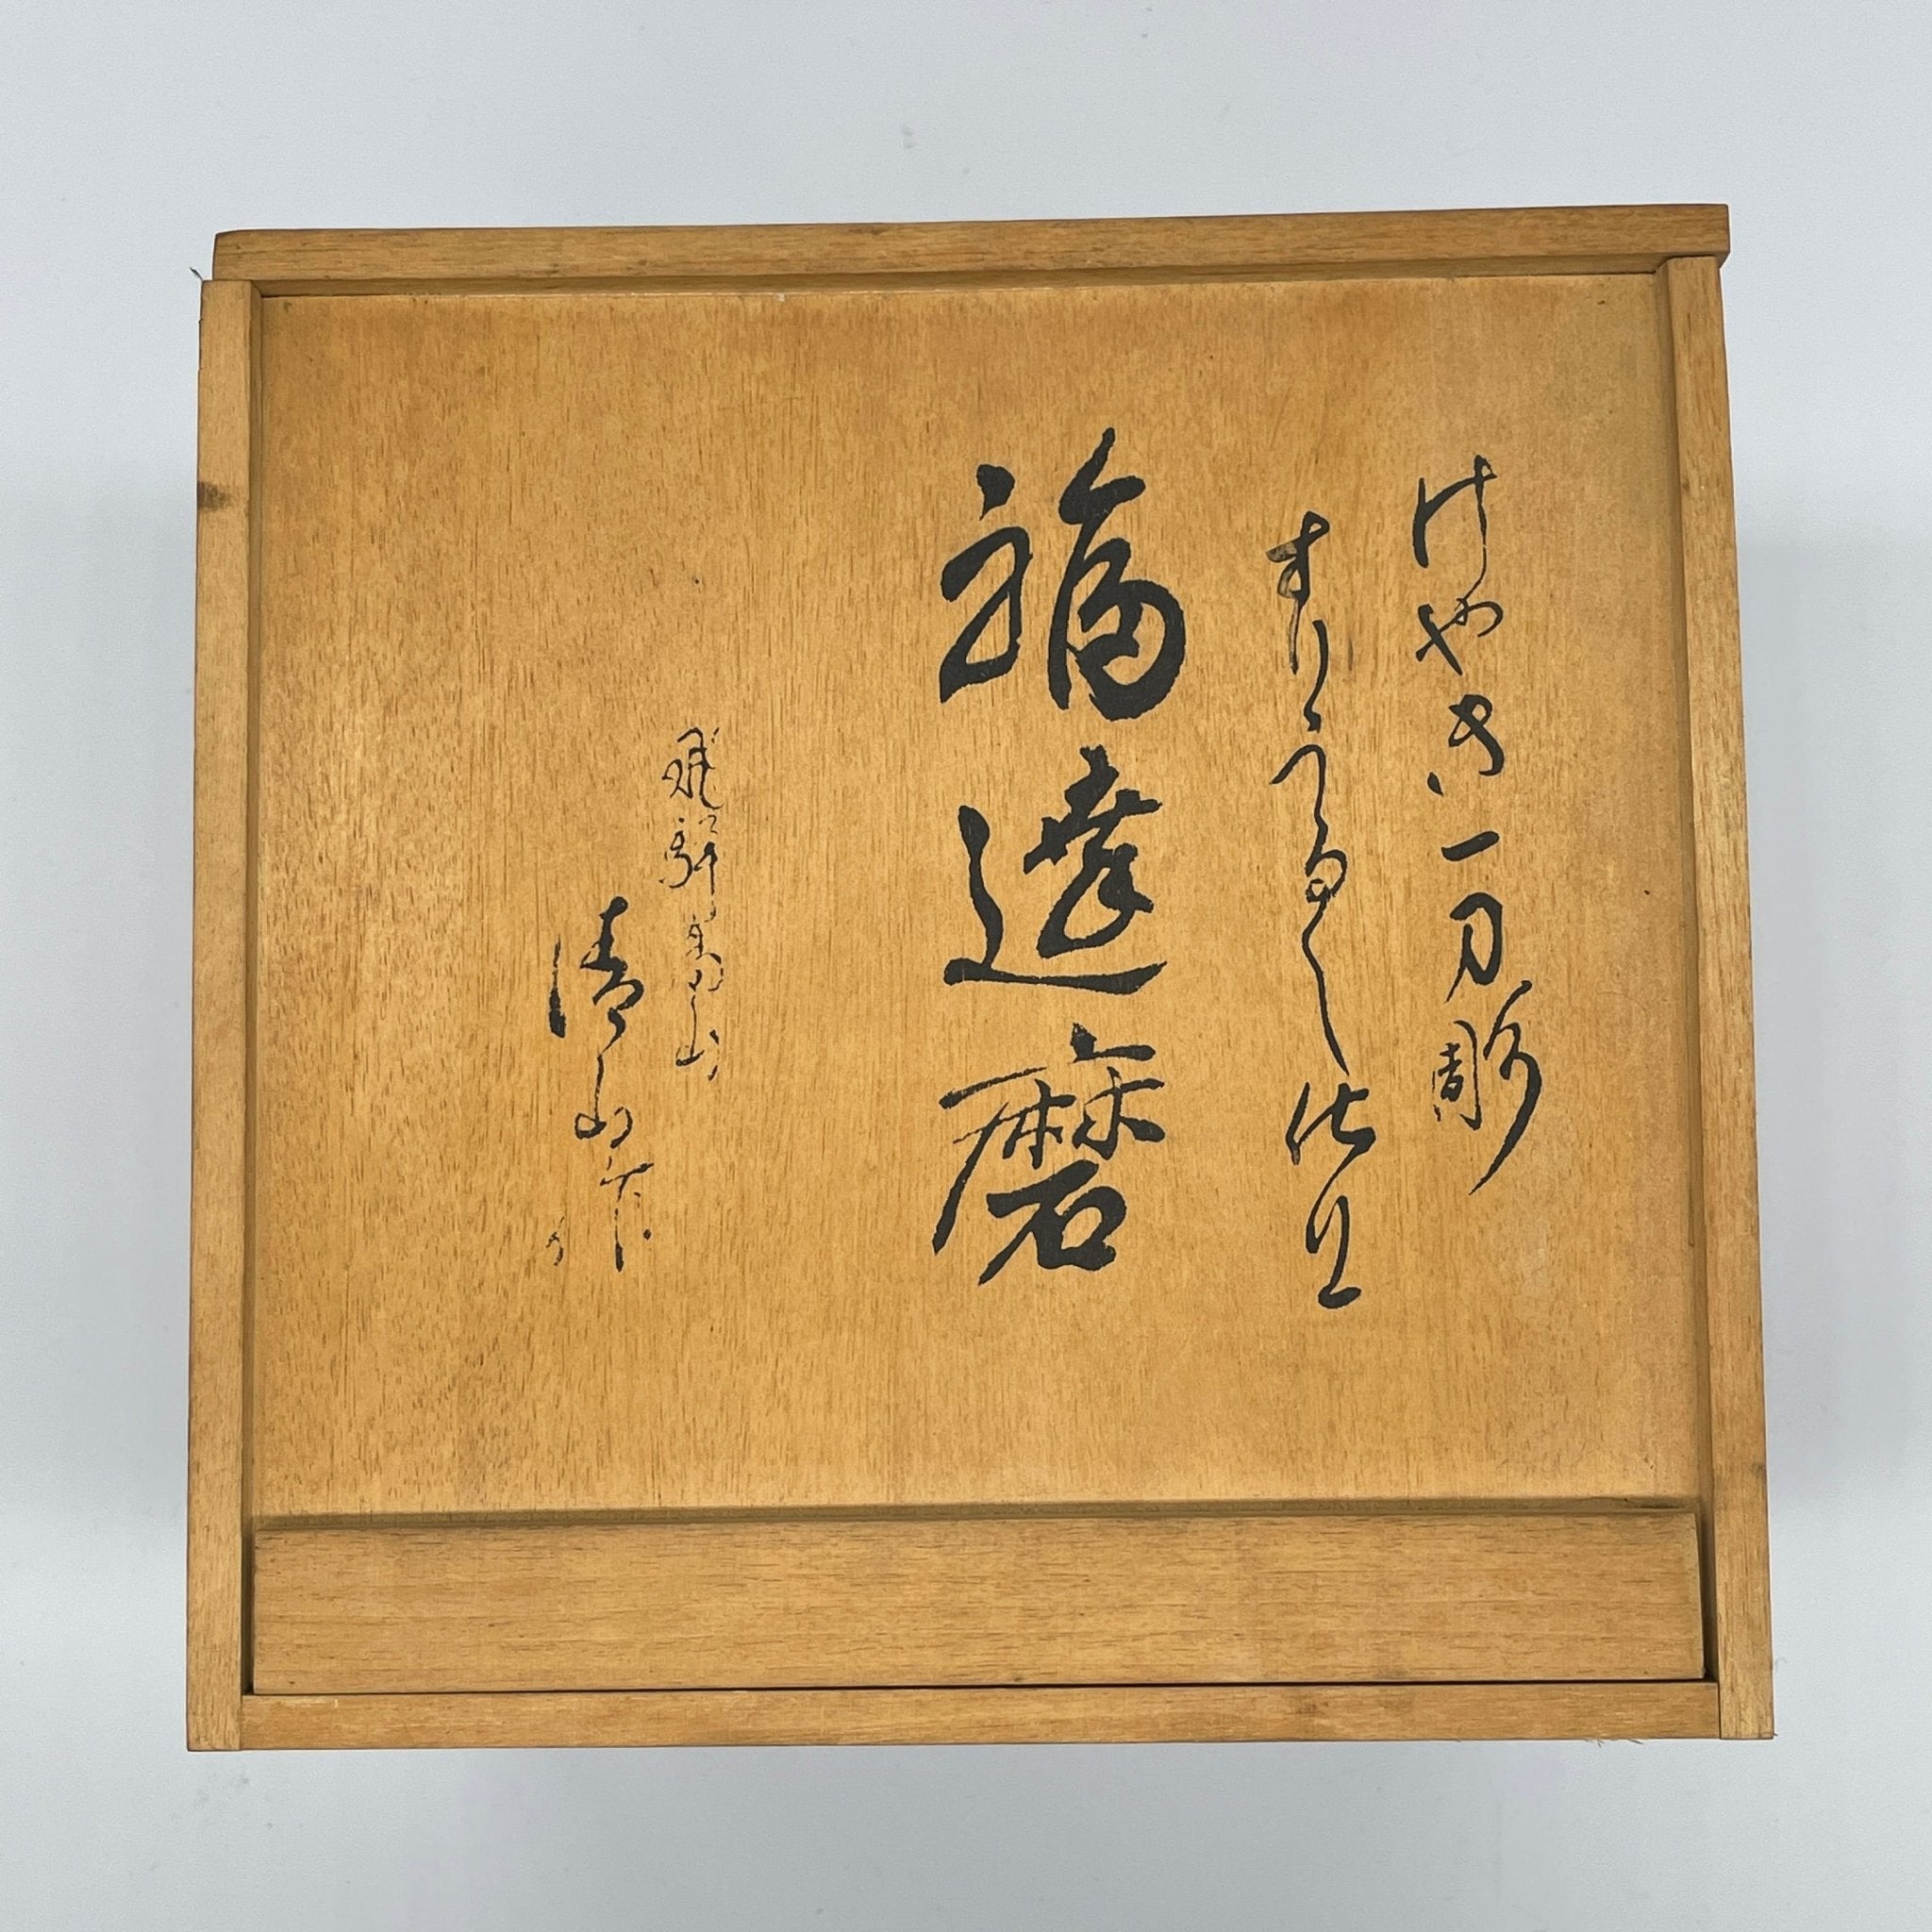 けやき一刀彫
すりうるし仕上
福達磨
飛騨高山
清山作